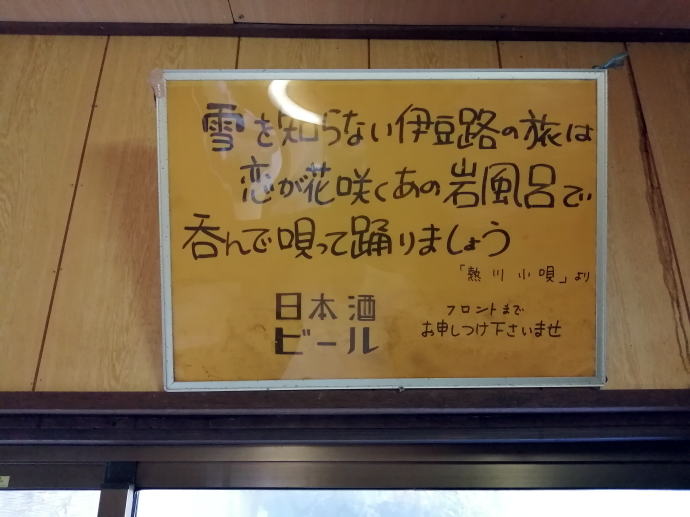 雪を知らない伊豆路の旅は
恋が花咲くあの岩風呂で
呑んで唄って踊りましょう
「熱川小唄」より
日本酒
ビール
フロントまで
お申しつけ下さいませ